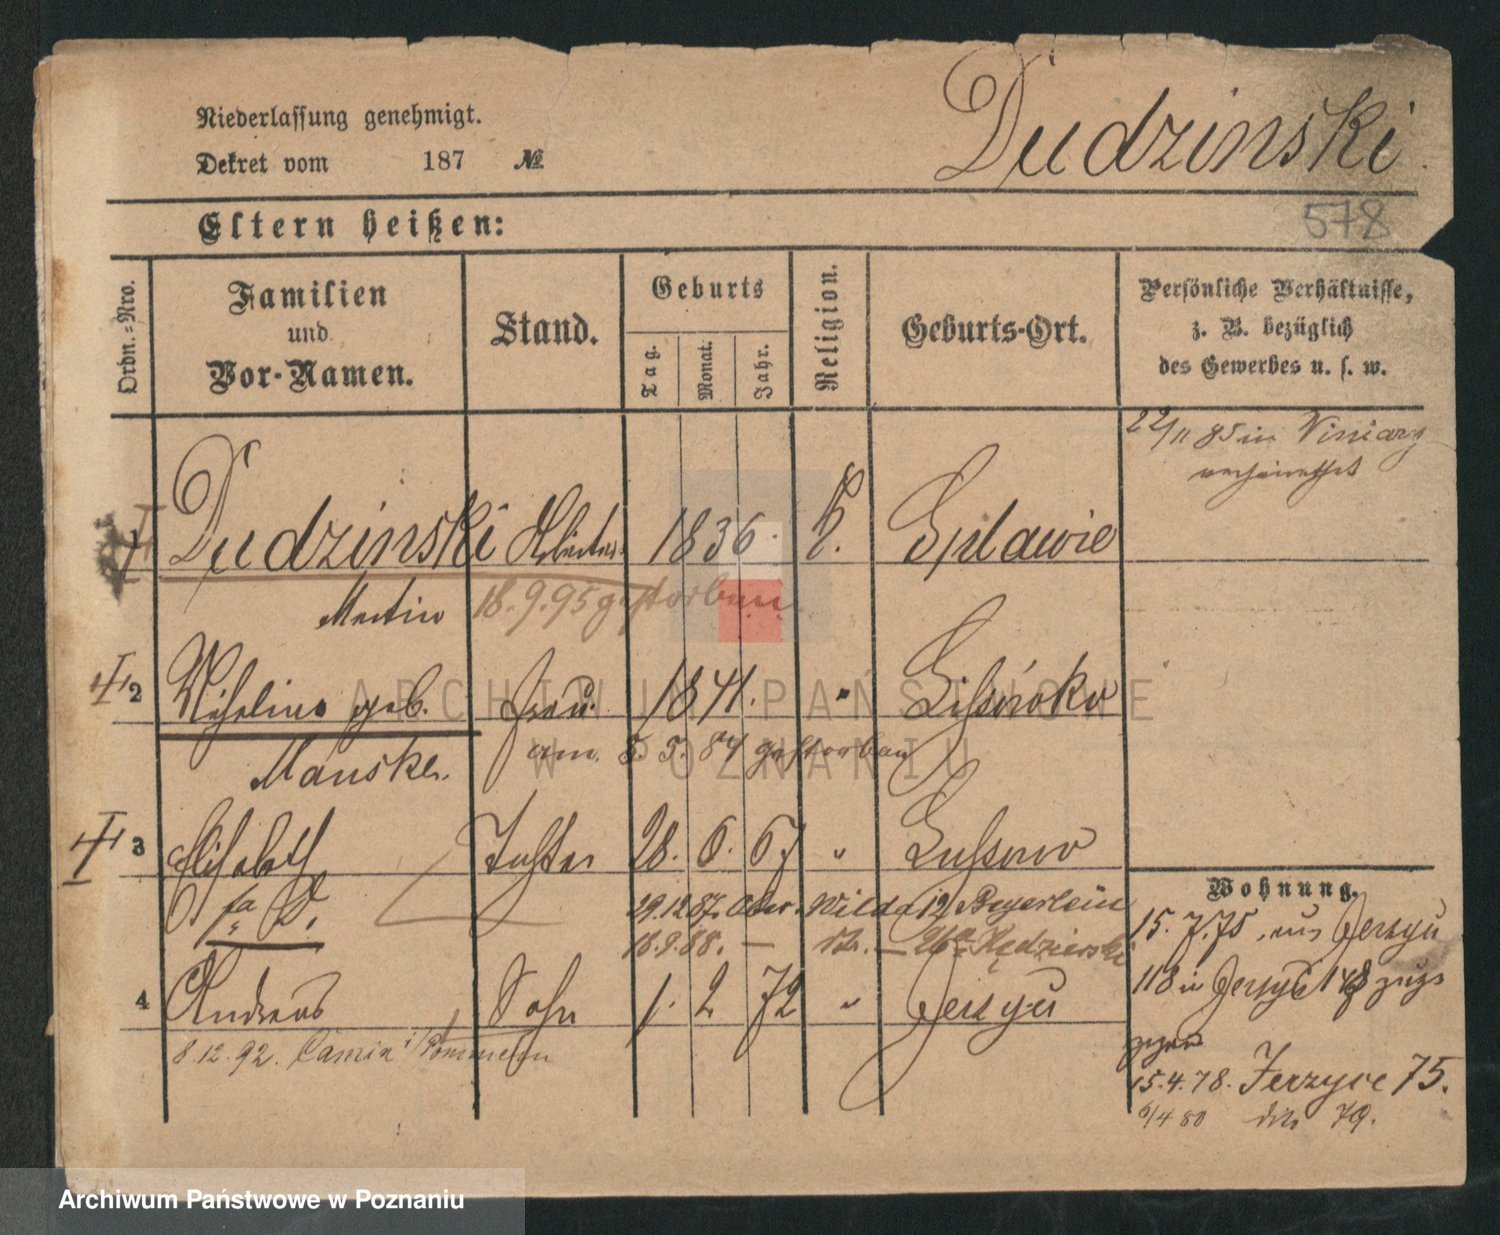 Niederlassung genehmigt.
Dekret vom 187 №
Dudzinski
578
Eltern heißen:
Ordn.=Nro.
Familien
und
Vor-Namen.
Stand.
Geburts
Tag.
Monat.
Jahr.
Religion.
Geburts-Ort.
Persönliche Verhältnisse,
z. B. bezüglich
des Gewerbes u. s. w.
22/11 85 in Winiary
verheirathet
1 Dudzinski Arbeiter 1836. k.
Martin 18.9.95 gestorben
2 geb. Frau 1841. "
am 5. 5. 84 gestorben
3 Elisabeth Tochter 28. 6. 67 "
D.
29.12.87. Ober Wilda 12 Beyerlein
18.9.88. — 12. — Kędzierski
4 Andreas Sohn 1. 2. 72 " Jersyce
8.12.92. Camin i/Pommern
Wohnung.
15. 7. 75. aus Jersyce
118 in Jersyce
15.4.78. Jerzyce 75.
6/4 80 dito 79.
ARCHIWUM PAŃSTWOWE
W POZNANIU
Archiwum Państwowe w Poznaniu